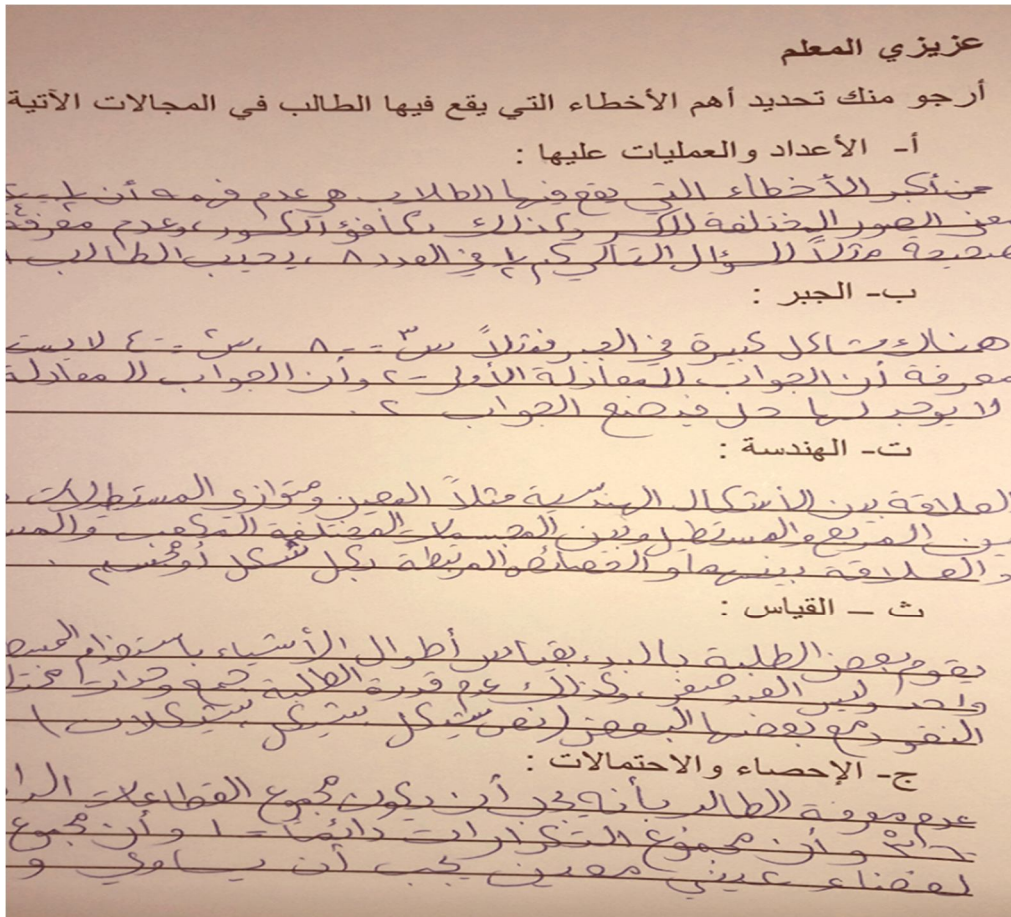 عزيزي المعلم
أرجو منك تحديد أهم الأخطاء التي يقع فيها الطالب في المجالات الآتية
أ- الأعداد والعمليات عليها :
من أكبر الأخطاء التي يقع فيها الطلاب هو عدم فهمه أن
الصور المختلفة للكسر وكذلك تكافؤ الكسور، وعدم معرفة
صحيحة مثلاً للسؤال التالي كم في العدد ٨ ، يجيب الطالب
ب- الجبر :
هناك مشاكل كبيرة في الجبر فمثلاً س٣ = -٨ ، س٢ = -٤ لا يست
معرفة أن الجواب للمعادلة الأولى -٢ وأن الجواب للمعادلة
لا يوجد لها حل فيضع الجواب ٢ .
ت- الهندسة :
العلاقة بين الأشكال الهندسية مثلاً المعين ومتوازي المستطيلات
بين المربع والمستطيل وبين المجسمات المختلفة المكعب والمس
والعلاقة بينهما والخصائص المرتبطة بكل شكل أو مجسم .
ث – القياس :
يقوم بعض الطلبة بالبدء بقياس أطوال الأشياء باستخدام المسط
واحد وليس الصفر، وكذلك عدم قدرة الطلبة وحدات
النقود مع بعضها البعض (نص شيكل ، شيكل ، شيكلات)
ج- الإحصاء والاحتمالات :
عدم معرفة الطالب بأنه يجب أن يكون مجموع القطاعات الدا
٣٦٠ وأن مجموع التكرارات دائماً = ١ وأن مجموع
لفضاء عيني معين يجب أن يساوي و